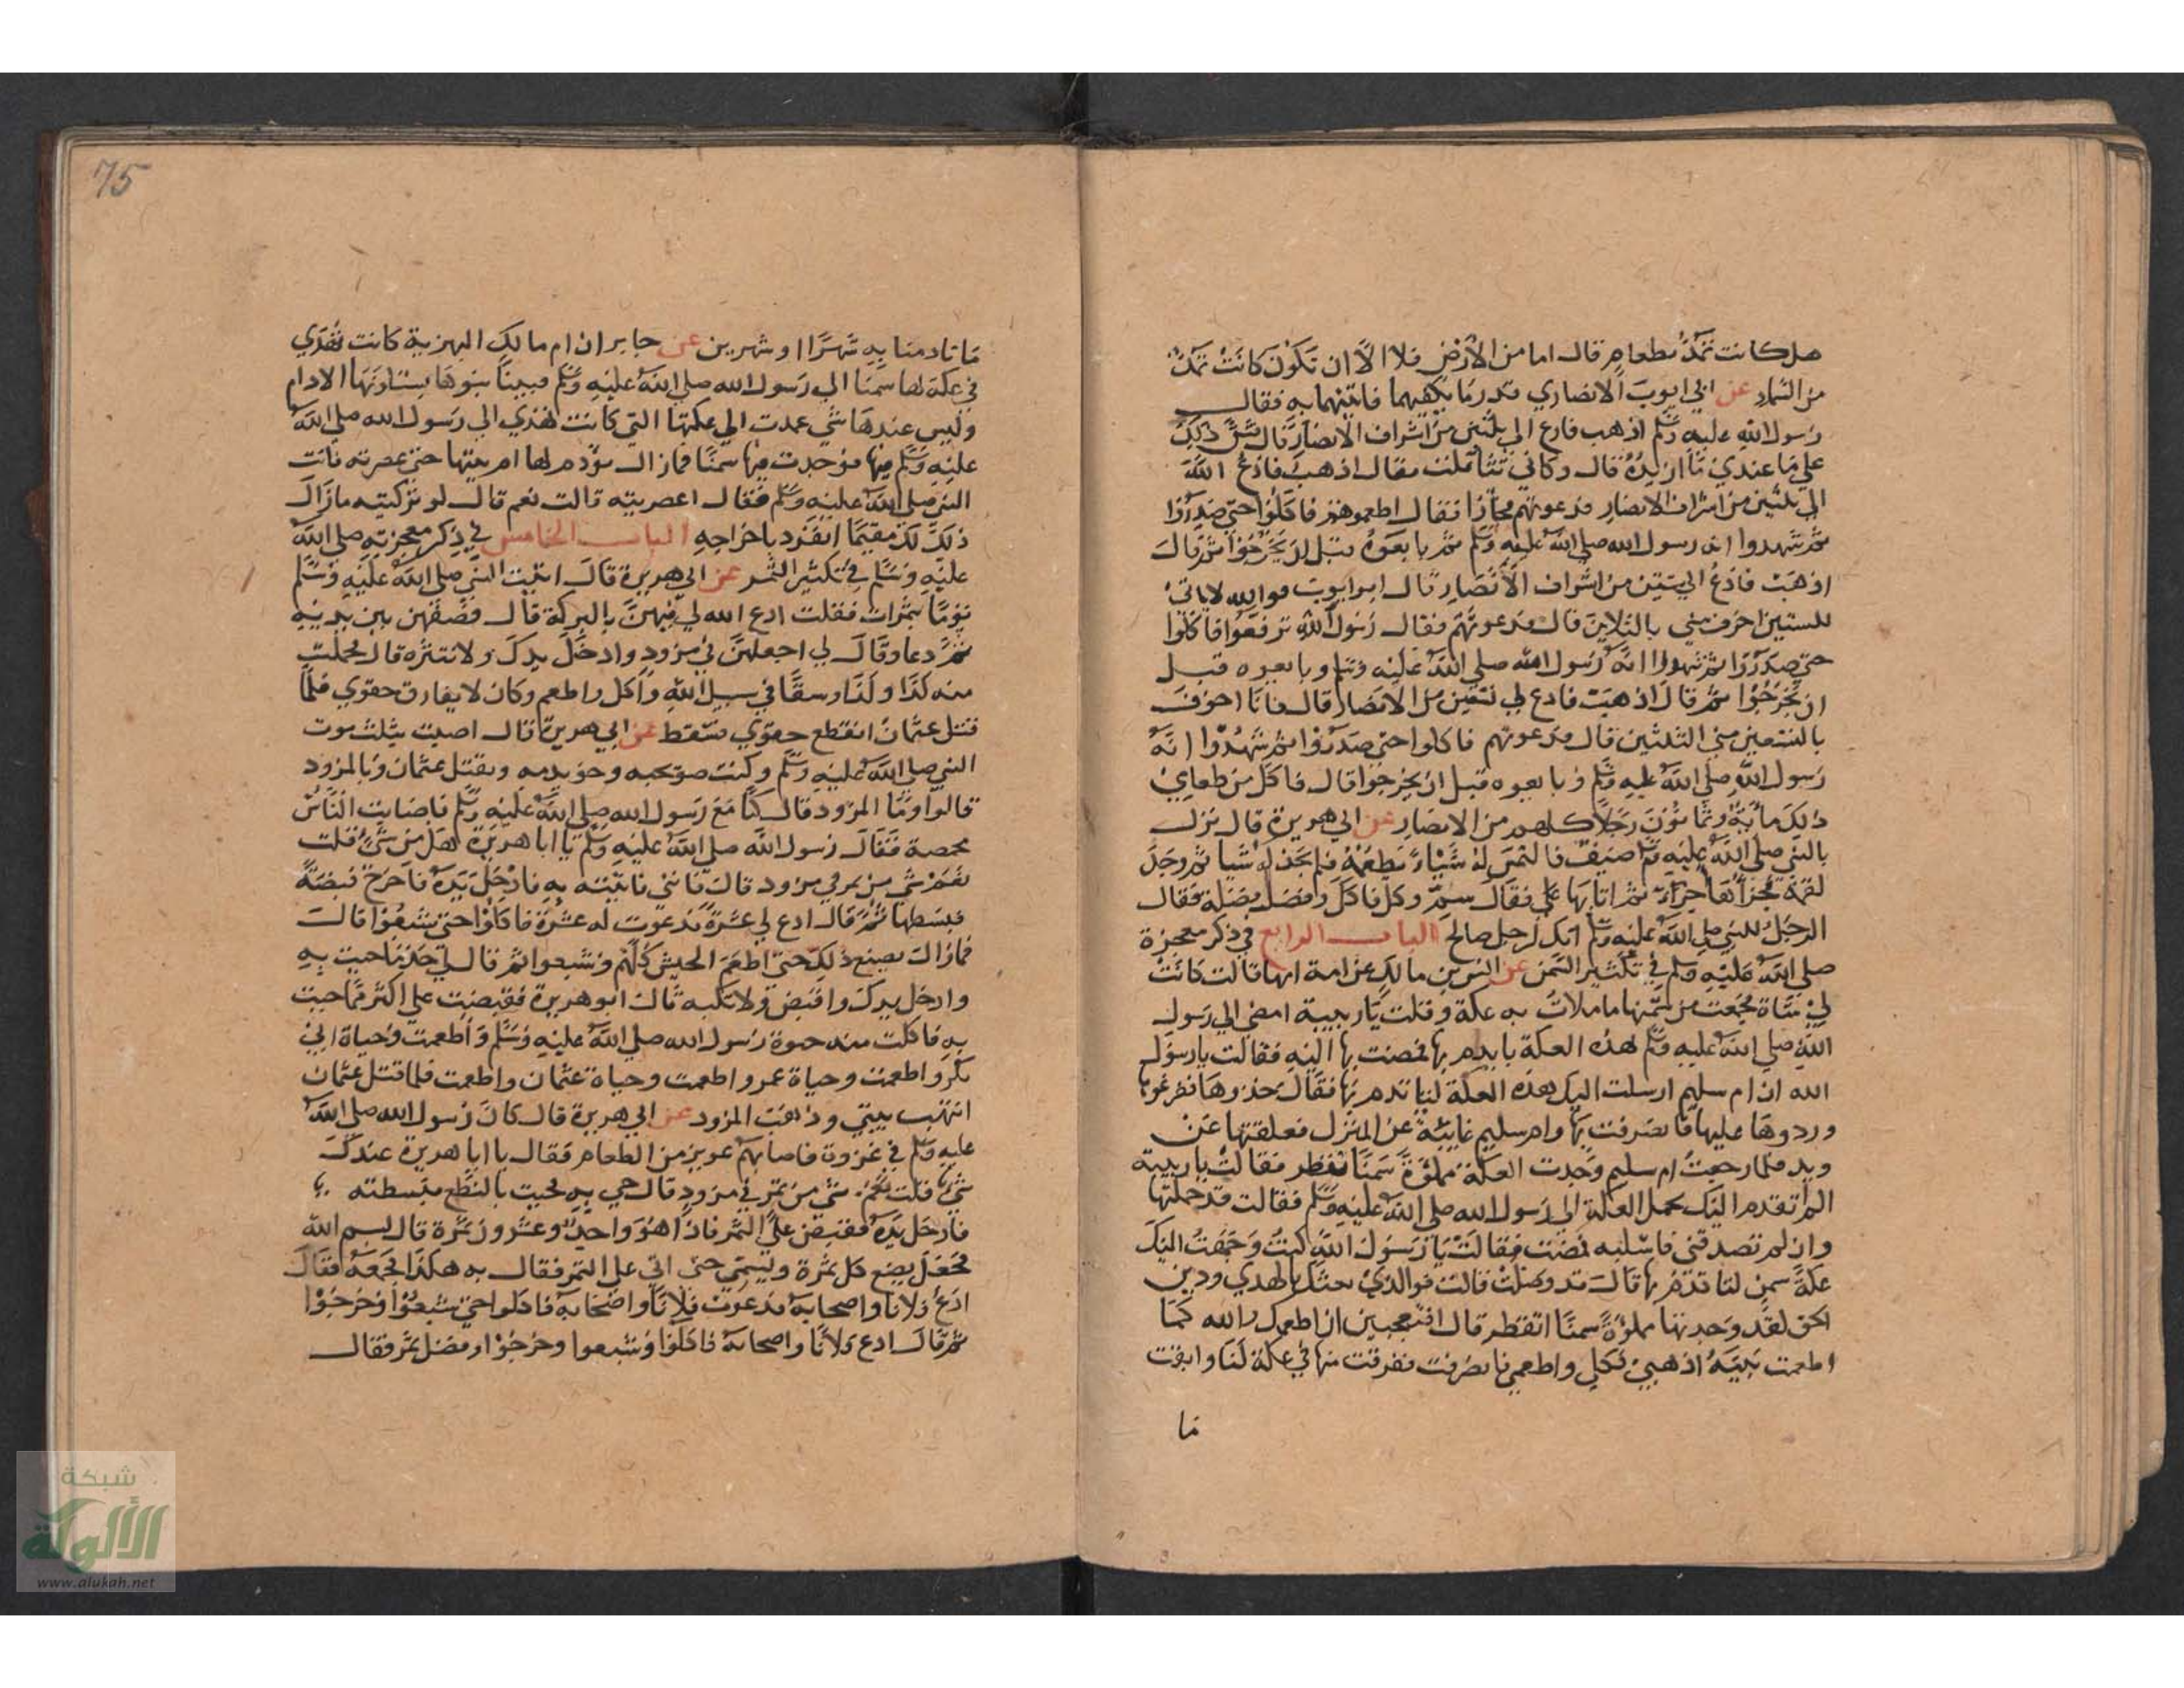 هل كانت تمد بطعام قال اما من الارض فلا الا ان تكون كانت تمد
من السماء عن ابي ايوب الانصاري قدر ما يكفيهما فاتيتهما به فقال
رسول الله صلى الله عليه وسلم اذهب فادع الي ثلثين من اشراف الانصار قال فشق ذلك
علي ما عندي ما ازيده قال وكاني تثاقلت فقال اذهب فادع الله
الي ثلثين من اشراف الانصار فدعوتهم فجاؤا فقال اطعموهم فاكلوا حتى صدروا
ثم شهدوا انه رسول الله صلى الله عليه وسلم ثم بايعوه قبل ان يخرجوا ثم قال
اذهب فادع الي ستين من اشراف الانصار قال ابو ايوب فوالله لاناتى
للستين اخوف مني بالثلاثين قال فدعوتهم فقال رسول الله ترفعوا فاكلوا
حتى صدروا ثم شهدوا انه رسول الله صلى الله عليه وسلم وبايعوه قبل
ان يخرجوا ثم قال اذهب فادع لي تسعين من الانصار قال فانا اخوف
بالتسعين مني الثلثين قال فدعوتهم فاكلوا حتى صدروا ثم شهدوا انه
رسول الله صلى الله عليه وسلم وبايعوه قبل ان يخرجوا قال فاكل من طعامي
ذلك مائة وثمانون رجلا كلهم من الانصار عن ابي هريرة قال نزل
بالنبي صلى الله عليه وسلم ضيف فالتمس له شيئا يطعمه فلم يجد له شيا ثم وجد
لقمة فجزأها اجزاء ثم اتا بها علي فقال سم وكل فاكل وافضل فضلة فقال
الرجل للنبي صلى الله عليه وسلم انك لرجل صالح الباب الرابع في ذكر معجزة
صلى الله عليه وسلم في تكثير السمن عن انس بن مالك عن امه انها قالت كانت
لي شاة فجمعت من سمنها ما ملات به عكة وقلت يا ربيبة امضي الي رسول
الله صلى الله عليه وسلم هذه العكة يا يدم بها فمضت بها اليه فقالت يا رسول
الله ان ام سليم ارسلت اليك بهذه العكة لتاتدم بها فقال خذوها ففرغوها
وردوها عليها فانصرفت بها وام سليم غايبة عن المنزل فعلقتها عن
وتد فلما رجعت ام سليم وجدت العكة مملوة سمنا تقطر فقالت يا ربيبة
الم اتقدم اليك بحمل العكة الي رسول الله صلى الله عليه وسلم فقالت قد حملتها
وان لم تصدقني فاسليه فمضت فقالت يا رسول الله كنت وجهت اليك
عكة سمن لتاتدم بها قال قد وصلت قالت فوالذي بعثك بالهدي ودين
الحق لقد وجدتها مملوة سمنا اتقطر قال افتعجبين ان اطعمك الله كما
اطعمت نبيه اذهبي فكلي واطعمي فانصرفت ففرقت منها في عكة لنا وابقت
ما
75
ما تادمنا به شهرا او شهرين عن جابر ان ام مالك البهزية كانت تهدي
في عكة لها سمنا الي رسول الله صلى الله عليه وسلم فبينا بنوها يسئلونها الادام
وليس عندها شي عمدت الي عكتها التي كانت تهدي الي رسول الله صلى الله
عليه وسلم فيها فوجدت فيها سمنا فما زال يؤدم لها ادم بيتها حتى عصرته فاتت
النبي صلى الله عليه وسلم فقال اعصرتيه قالت نعم قال لو تركتيه مازال
ذلك لك مقيما انفرد باخراجه الباب الخامس في ذكر معجزته صلى الله
عليه وسلم في تكثير التمر عن ابي هريرة قال اتيت النبي صلى الله عليه وسلم
يوما بتمرات فقلت ادع الله لي فيهن بالبركة قال فصفهن بين يديه
ثم دعا وقال لي اجعلهن في مزود وادخل يدك ولا تنثره قال فحملت
منه كذا وكذا وسقا في سبيل الله وآكل واطعم وكان لا يفارق حقوي فلما
قتل عثمان انقطع حقوي فسقط عن ابي هريرة قال اصبت بثلث بموت
النبي صلى الله عليه وسلم وكنت صويحبه وخويدمه وبقتل عثمان وبالمزود
قالوا وما المزود قال كنا مع رسول الله صلى الله عليه وسلم فاصابت الناس
مخمصة فقال رسول الله صلى الله عليه وسلم يا ابا هريرة هل من شي قلت
نعم شي من تمر في مزود قال فاتني فاتيته به فادخل يده فاخرج قبضة
فبسطها ثم قال ادع لي عشرة فدعوت له عشرة فاكلوا حتى شبعوا قال
فما زال يصنع ذلك حتى اطعم الجيش كلهم وشبعوا ثم قال لي خذ ما جيت به
وادخل يدك واقبض ولا تكبه قال ابو هريرة فقبضت علي اكثر مما جيت
به فاكلت منه حيوة رسول الله صلى الله عليه وسلم واطعمت وحياة ابي
بكر واطعمت وحياة عمر واطعمت وحياة عثمان واطعمت فلما قتل عثمان
انتهب بيتي وذهب المزود عن ابي هريرة قال كان رسول الله صلى الله
عليه وسلم في غزوة فاصابهم عوز من الطعام فقال يا ابا هريرة عندك
شي قلت نعم شي من تمر في مزود قال جي به فجيت بالنطع فبسطته
فادخل يده فقبض علي التمر فاذا هو واحد وعشرون تمرة قال بسم الله
فجعل يضع كل تمرة ويسمى حتى اتي علي التمر فقال به هكذا فجمعه فقال
ادع فلانا واصحابه فدعوت فلانا واصحابه فاكلوا حتى شبعوا وخرجوا
ثم قال ادع فلانا واصحابه فاكلوا وشبعوا وخرجوا وفضل تمر فقال
شبكة
الألوكة
www.alukah.net